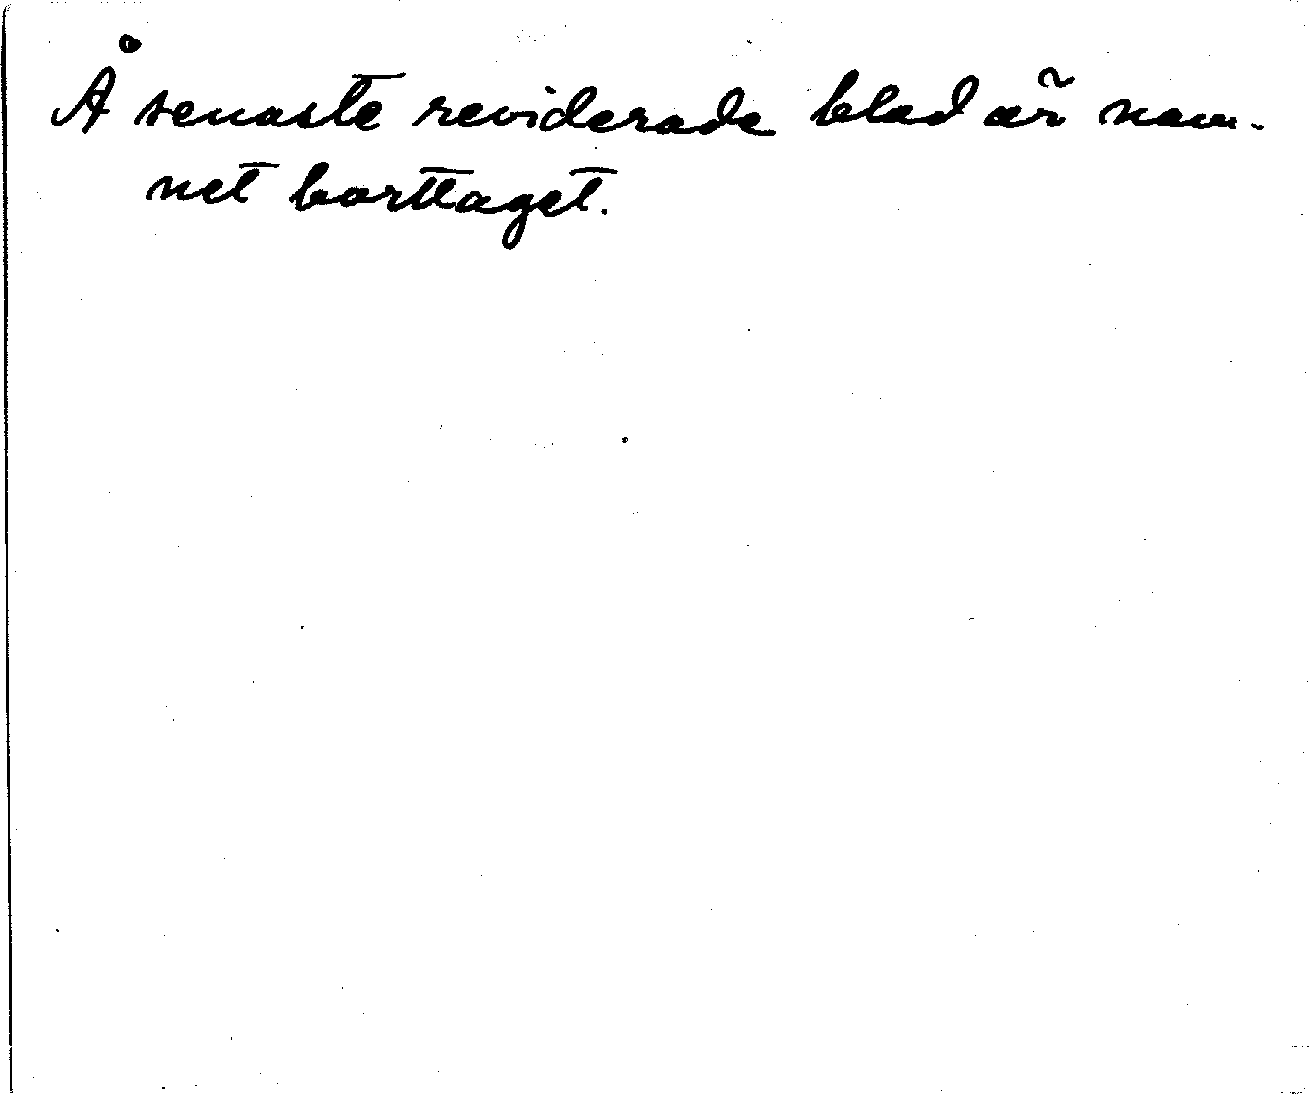 Å senaste reviderade blad är nam-
net borttaget.